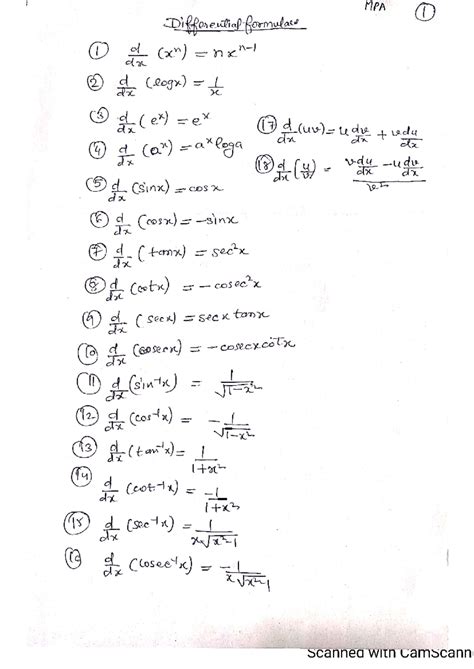 MPA
①
Differential formulae
① d/dx (xⁿ) = nxⁿ⁻¹
② d/dx (logx) = 1/x
③ d/dx (eˣ) = eˣ
④ d/dx (aˣ) = aˣloga
⑤ d/dx (sinx) = cosx
⑥ d/dx (cosx) = -sinx
⑦ d/dx (tanx) = sec²x
⑧ d/dx (cotx) = -cosec²x
⑨ d/dx (secx) = secx tanx
⑩ d/dx (cosecx) = -cosecxcotx
⑪ d/dx (sin⁻¹x) = 1/√1-x²
⑫ d/dx (cos⁻¹x) = -1/√1-x²
⑬ d/dx (tan⁻¹x) = 1/1+x²
⑭ d/dx (cot⁻¹x) = -1/1+x²
⑮ d/dx (sec⁻¹x) = 1/x√x²-1
⑯ d/dx (cosec⁻¹x) = -1/x√x²-1
⑰ d/dx (uv) = u dv/dx + v du/dx
⑱ d/dx (u/v) = v du/dx - u dv/dx / v²
Scanned with CamScann